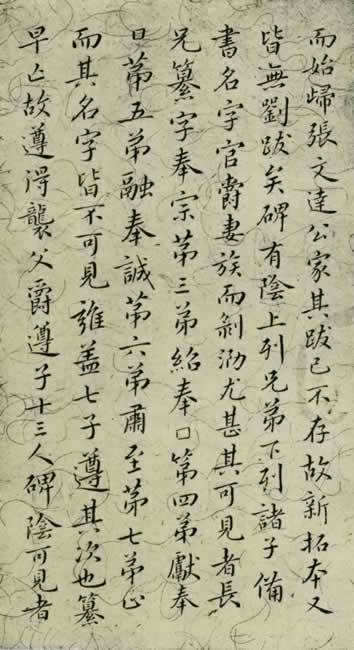 而始歸張文達公家其跋已不存故新拓本又
皆無劉跋矣碑有陰上列兄弟下列諸子備
書名字官爵妻族而剝泐尤甚其可見者長
兄纂字奉宗苐三弟紹奉口第四弟獻奉
日苐五弟融奉誠苐六弟肅至苐七弟止
而其名字皆不可見雍盖七子遵其次也纂
早亡故遵淂襲父爵遵子十三人碑陰可見者